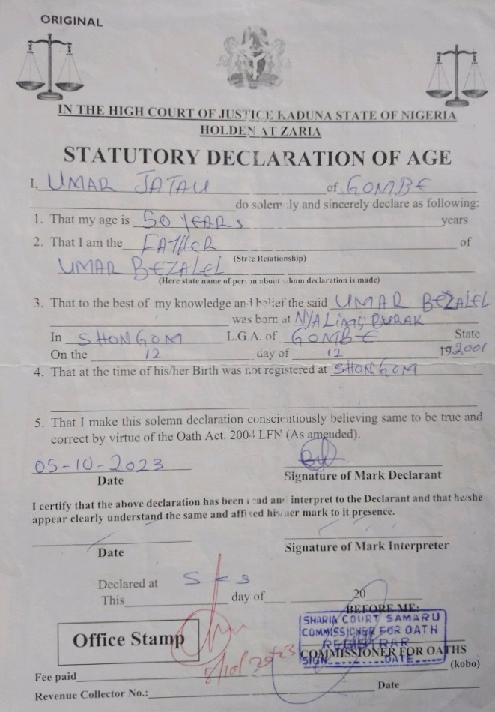 ORIGINAL
IN THE HIGH COURT OF JUSTICE KADUNA STATE OF NIGERIA
HOLDEN AT ZARIA
STATUTORY DECLARATION OF AGE
I. UMAR JATAU of GOMBE
do solemnly and sincerely declare as following:
1. That my age is 50 YEARS years
2. That I am the FATHER of
(State Relationship)
UMAR BEZALEL
(Here state name of person about whom declaration is made)
3. That to the best of my knowledge and belief the said UMAR BEZALEL
was born at NYALIMI BURAK
In SHONGOM L.G.A. of GOMBE State
On the 12 day of 12 19 2001
4. That at the time of his/her Birth was not registered at SHONGOM
5. That I make this solemn declaration conscientiously believing same to be true and
correct by virtue of the Oath Act. 2004 LFN (As amended).
05-10-2023
Date Signature of Mark Declarant
I certify that the above declaration has been read and interpret to the Declarant and that he/she
appear clearly understand the same and affixed his/her mark to it presence.
Date Signature of Mark Interpreter
Declared at
This day of 20
BEFORE ME:
SHARIA COURT SAMARU
COMMISSIONER FOR OATH
REGISTRAR
SIGN DATE
Office Stamp
COMMISSIONER FOR OATHS
Fee paid (kobo)
Revenue Collector No.: Date